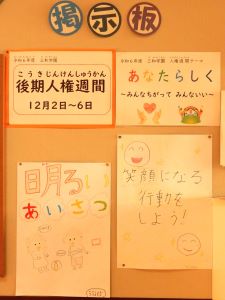 掲示板
令和6年度 三和学園
こうきじんけんしゅうかん
後期人権週間
12月2日~6日
令和6年度 三和学園 人権週間テーマ
あなたらしく
~みんなちがって みんないい~
明るい
あいさつ
笑顔になる
行動を
しよう!